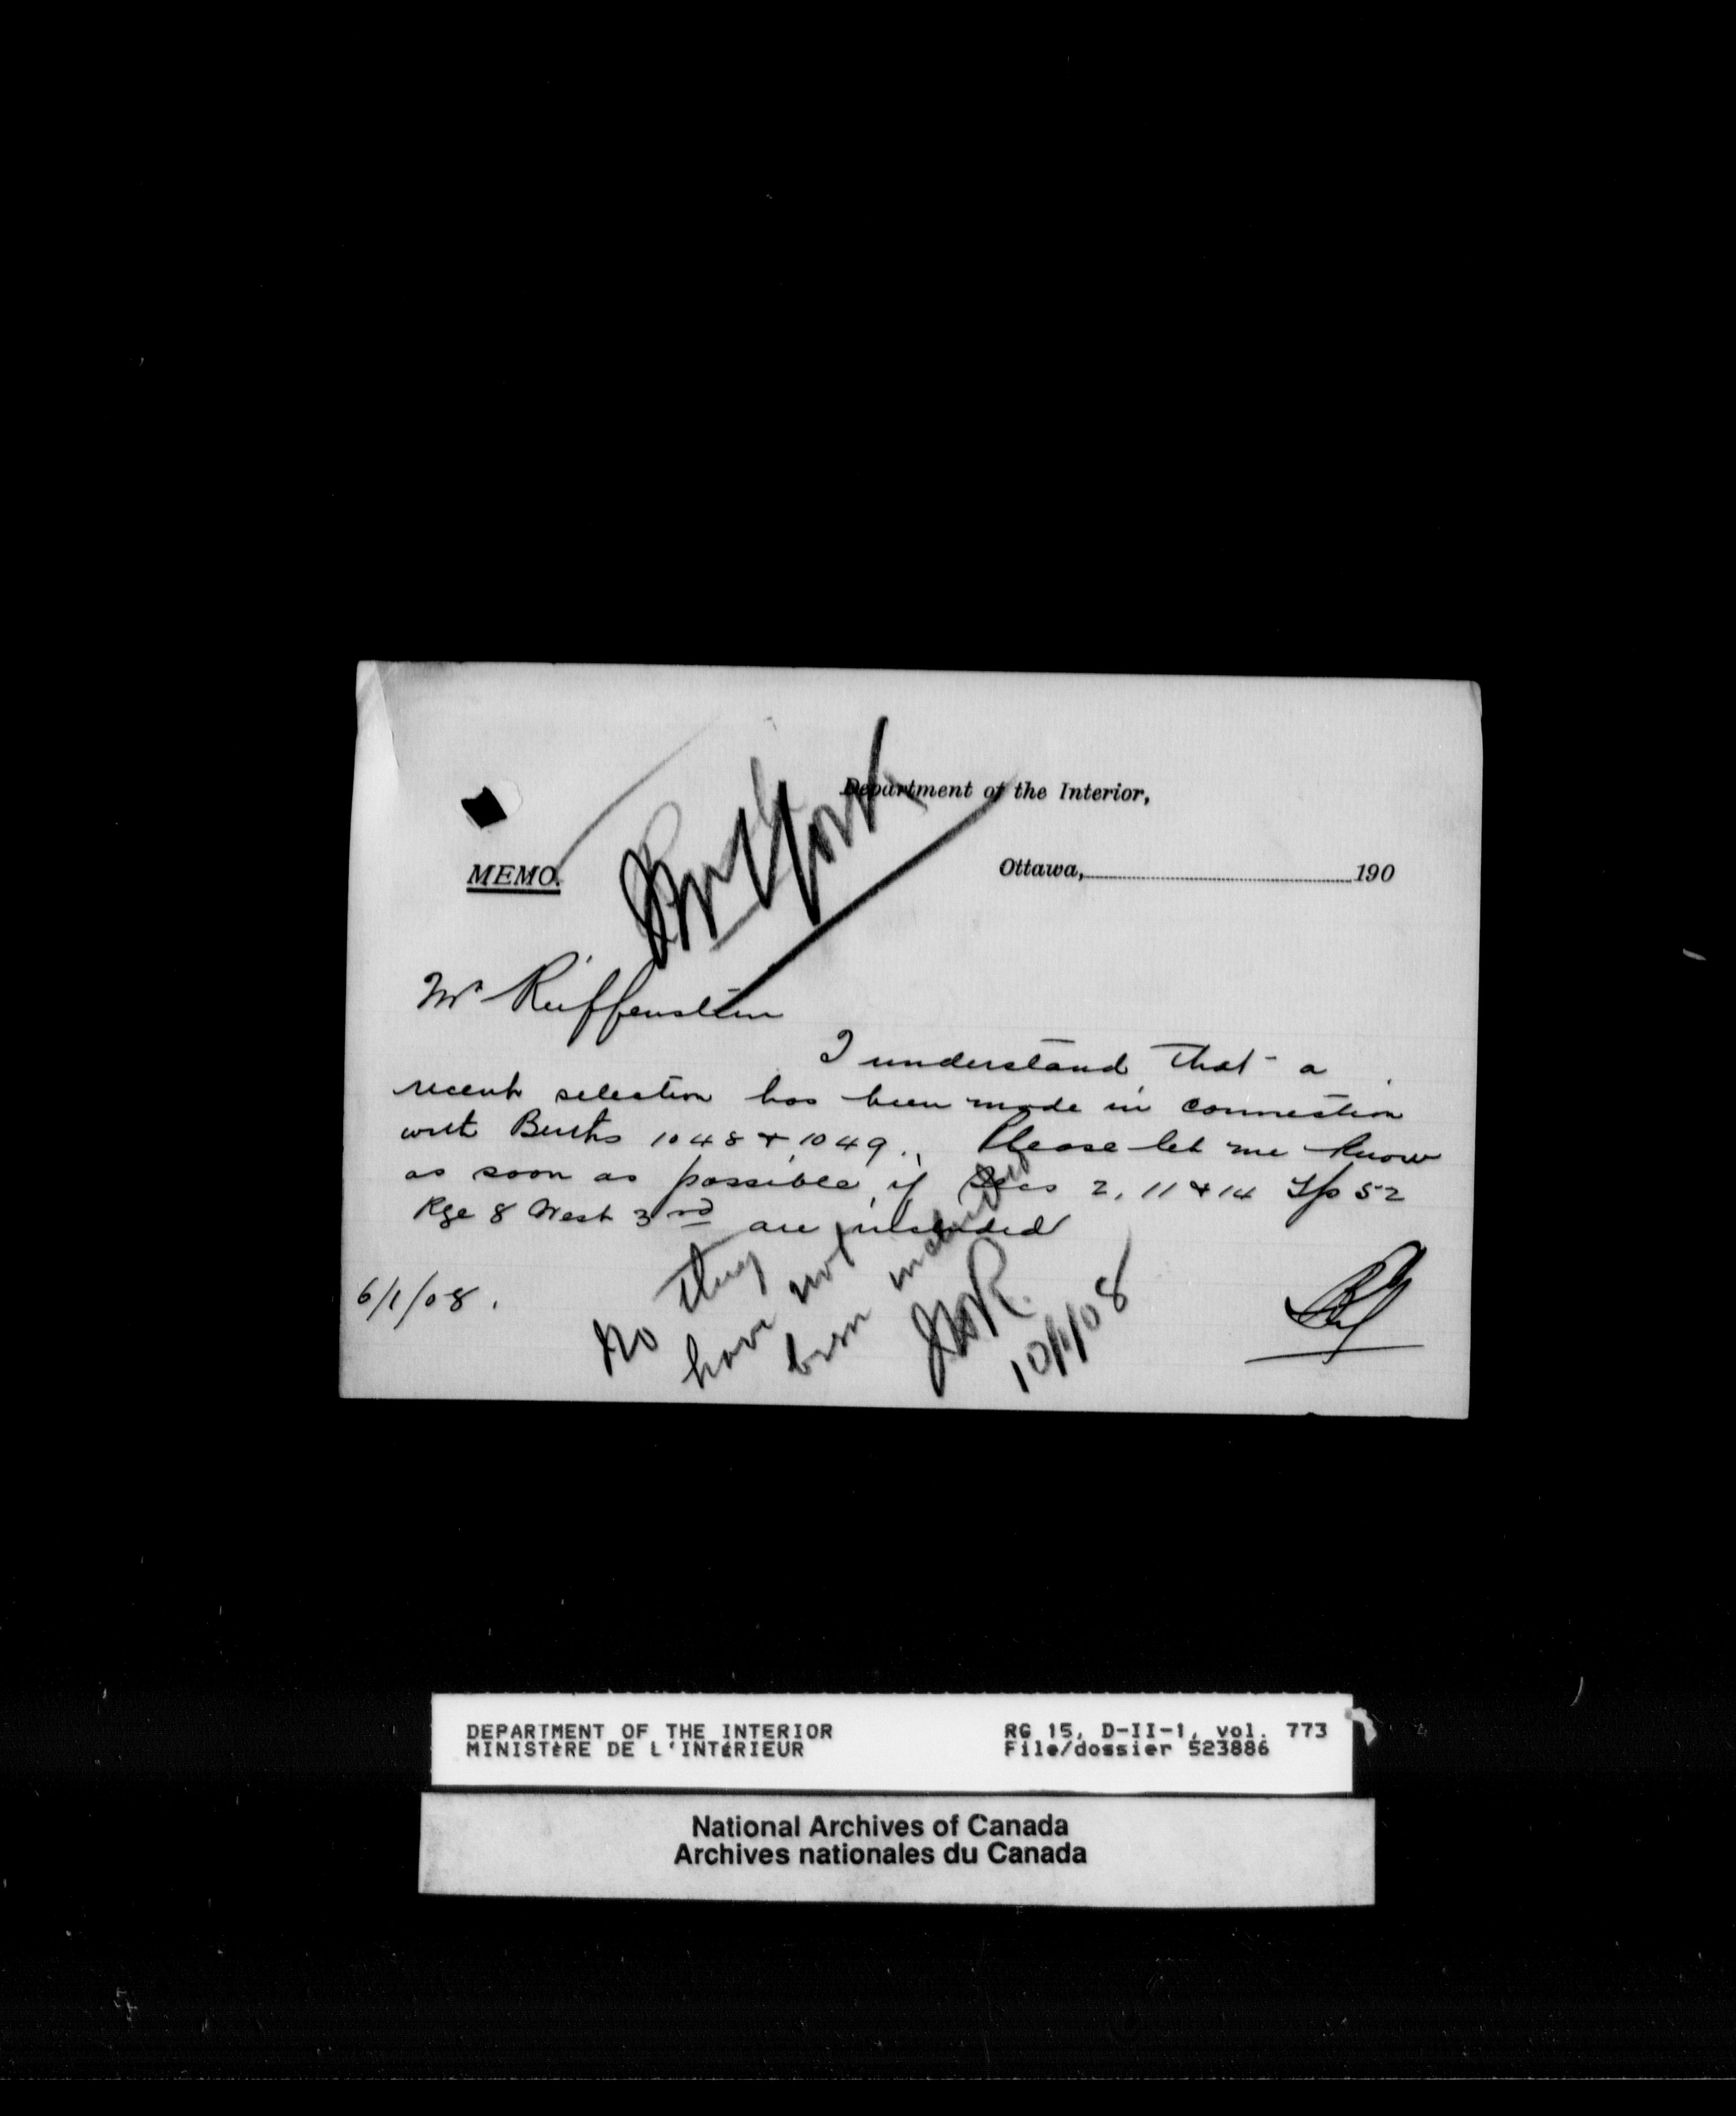 Department of the Interior,
MEMO.
Ottawa, 190
Mr Reiffenstein
I understand that a
recent selection has been made in connection
with Berths 1048 & 1049. Please let me know
as soon as possible if Secs 2, 11 & 14 Tp 52
Rge 8 West 3rd are included
6/1/08.
No they
have not
been included
10/1/08
DEPARTMENT OF THE INTERIOR
MINISTèRE DE L'INTéRIEUR
RG 15, D-II-1, vol. 773
File/dossier 523886
National Archives of Canada
Archives nationales du Canada